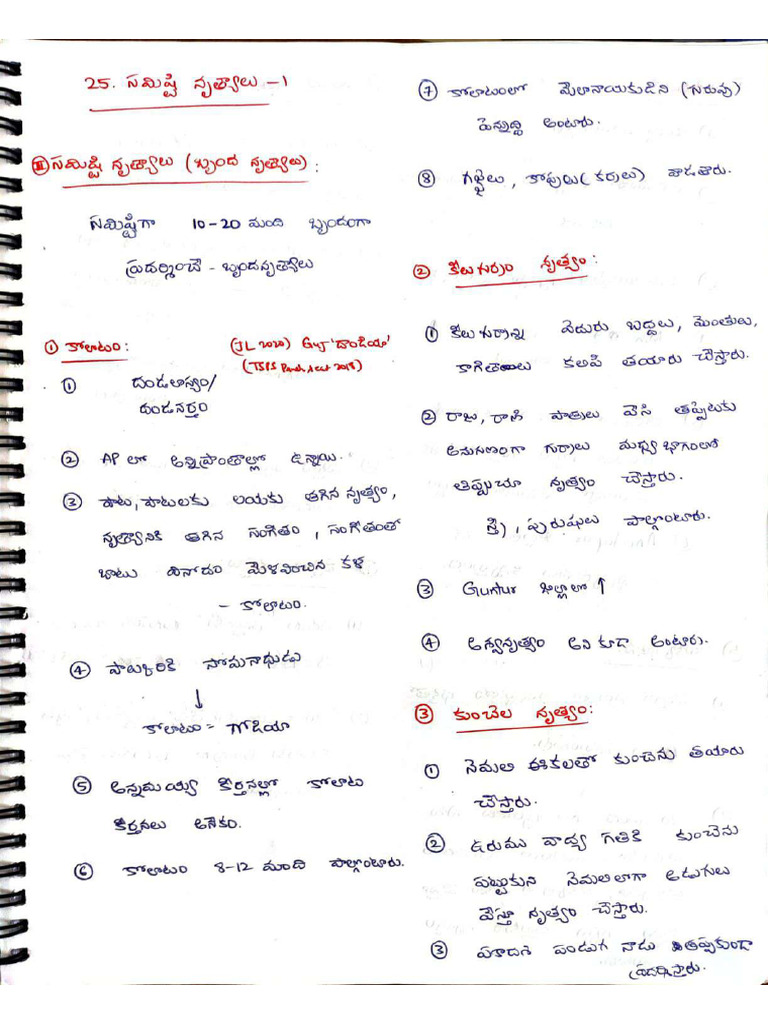 25. సమిష్టి నృత్యాలు - 1
III సమిష్టి నృత్యాలు (బృంద నృత్యాలు) :
సమిష్టిగా 10-20 మంది బృందంగా
ప్రదర్శించే - బృందనృత్యాలు
① కోలాటం: (JL 2020) Guj 'దాండియా'
(TSPS 2018)
① దండలాస్యం/
దండనర్తం
② AP లో అన్నిప్రాంతాల్లో ఉన్నాయి.
③ పాట, పాటలకు లయకు తగిన నృత్యం,
నృత్యానికి తగిన సంగీతం, సంగీతంతో
బాటు వినోదం మేళవించిన కళ
- కోలాటం.
④ పాల్కురికి సోమనాథుడు
↓
కోలాటం = గోడియా
⑤ అన్నమయ్య కీర్తనల్లో కోలాట
కీర్తనలు అనేకం.
⑥ కోలాటం 8-12 మంది పాల్గొంటారు.
⑦ కోలాటంలో మేలనాయకుడిని (గురువు)
పెన్నుద్ది అంటారు.
⑧ గజ్జెలు, కోపులు (కర్రలు) వాడతారు.
② కీలుగుర్రం నృత్యం:
① కీలుగుర్రాన్ని వెదురు బద్దలు, మెంతులు,
కాగితాలు కలిపి తయారు చేస్తారు.
② రాజు, రాణి పాత్రలు వేసి తప్పెటకు
అనుగుణంగా గుర్రాలు మధ్యభాగంలో
తిప్పుచూ నృత్యం చేస్తారు.
స్త్రీ, పురుషులు పాల్గొంటారు.
③ Guntur జిల్లాలో ↑
④ అశ్వనృత్యం అని కూడా అంటారు.
③ కుంచెల నృత్యం:
① నెమలి ఈకలతో కుంచెను తయారు
చేస్తారు.
② ఉరుము వాద్య గతికి కుంచెను
పట్టుకుని నెమలిలాగా అడుగులు
వేస్తూ నృత్యం చేస్తారు.
③ ఏకాదశి పండుగ నాడు తప్పకుండా
ప్రదర్శిస్తారు.